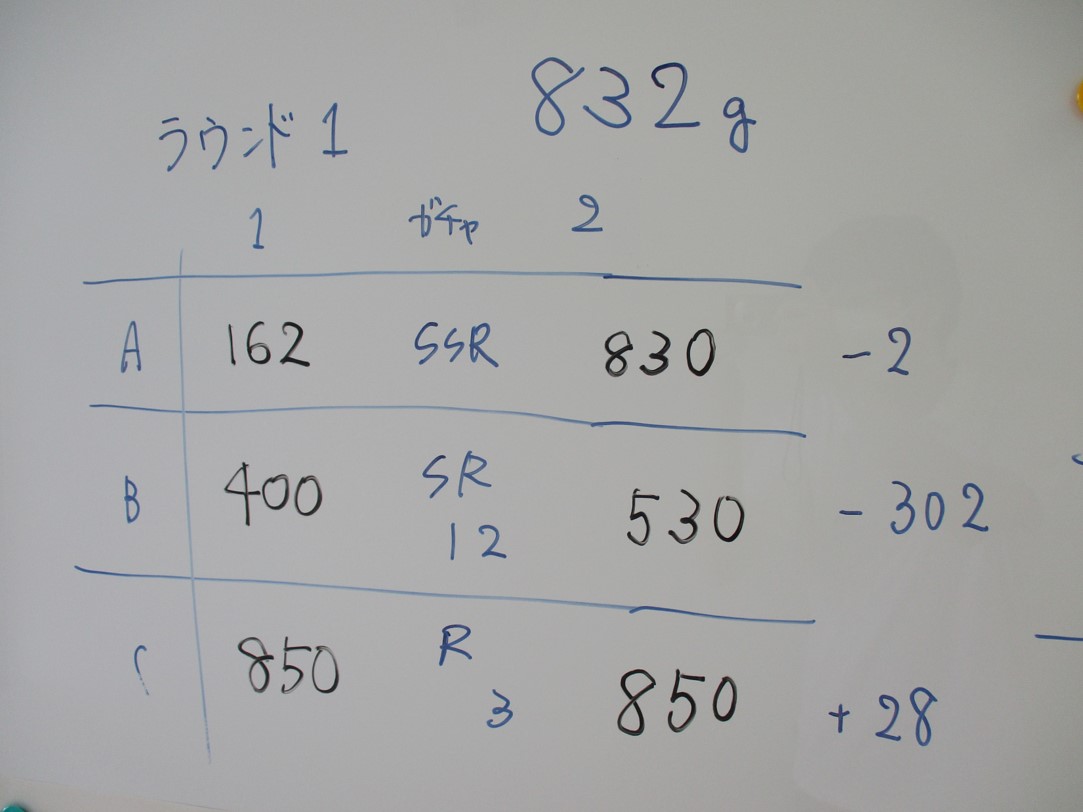 832g
ラウンド1
1 ガチャ 2
A 162 SSR 830 -2
B 400 SR 12 530 -302
C 850 R 3 850 +28